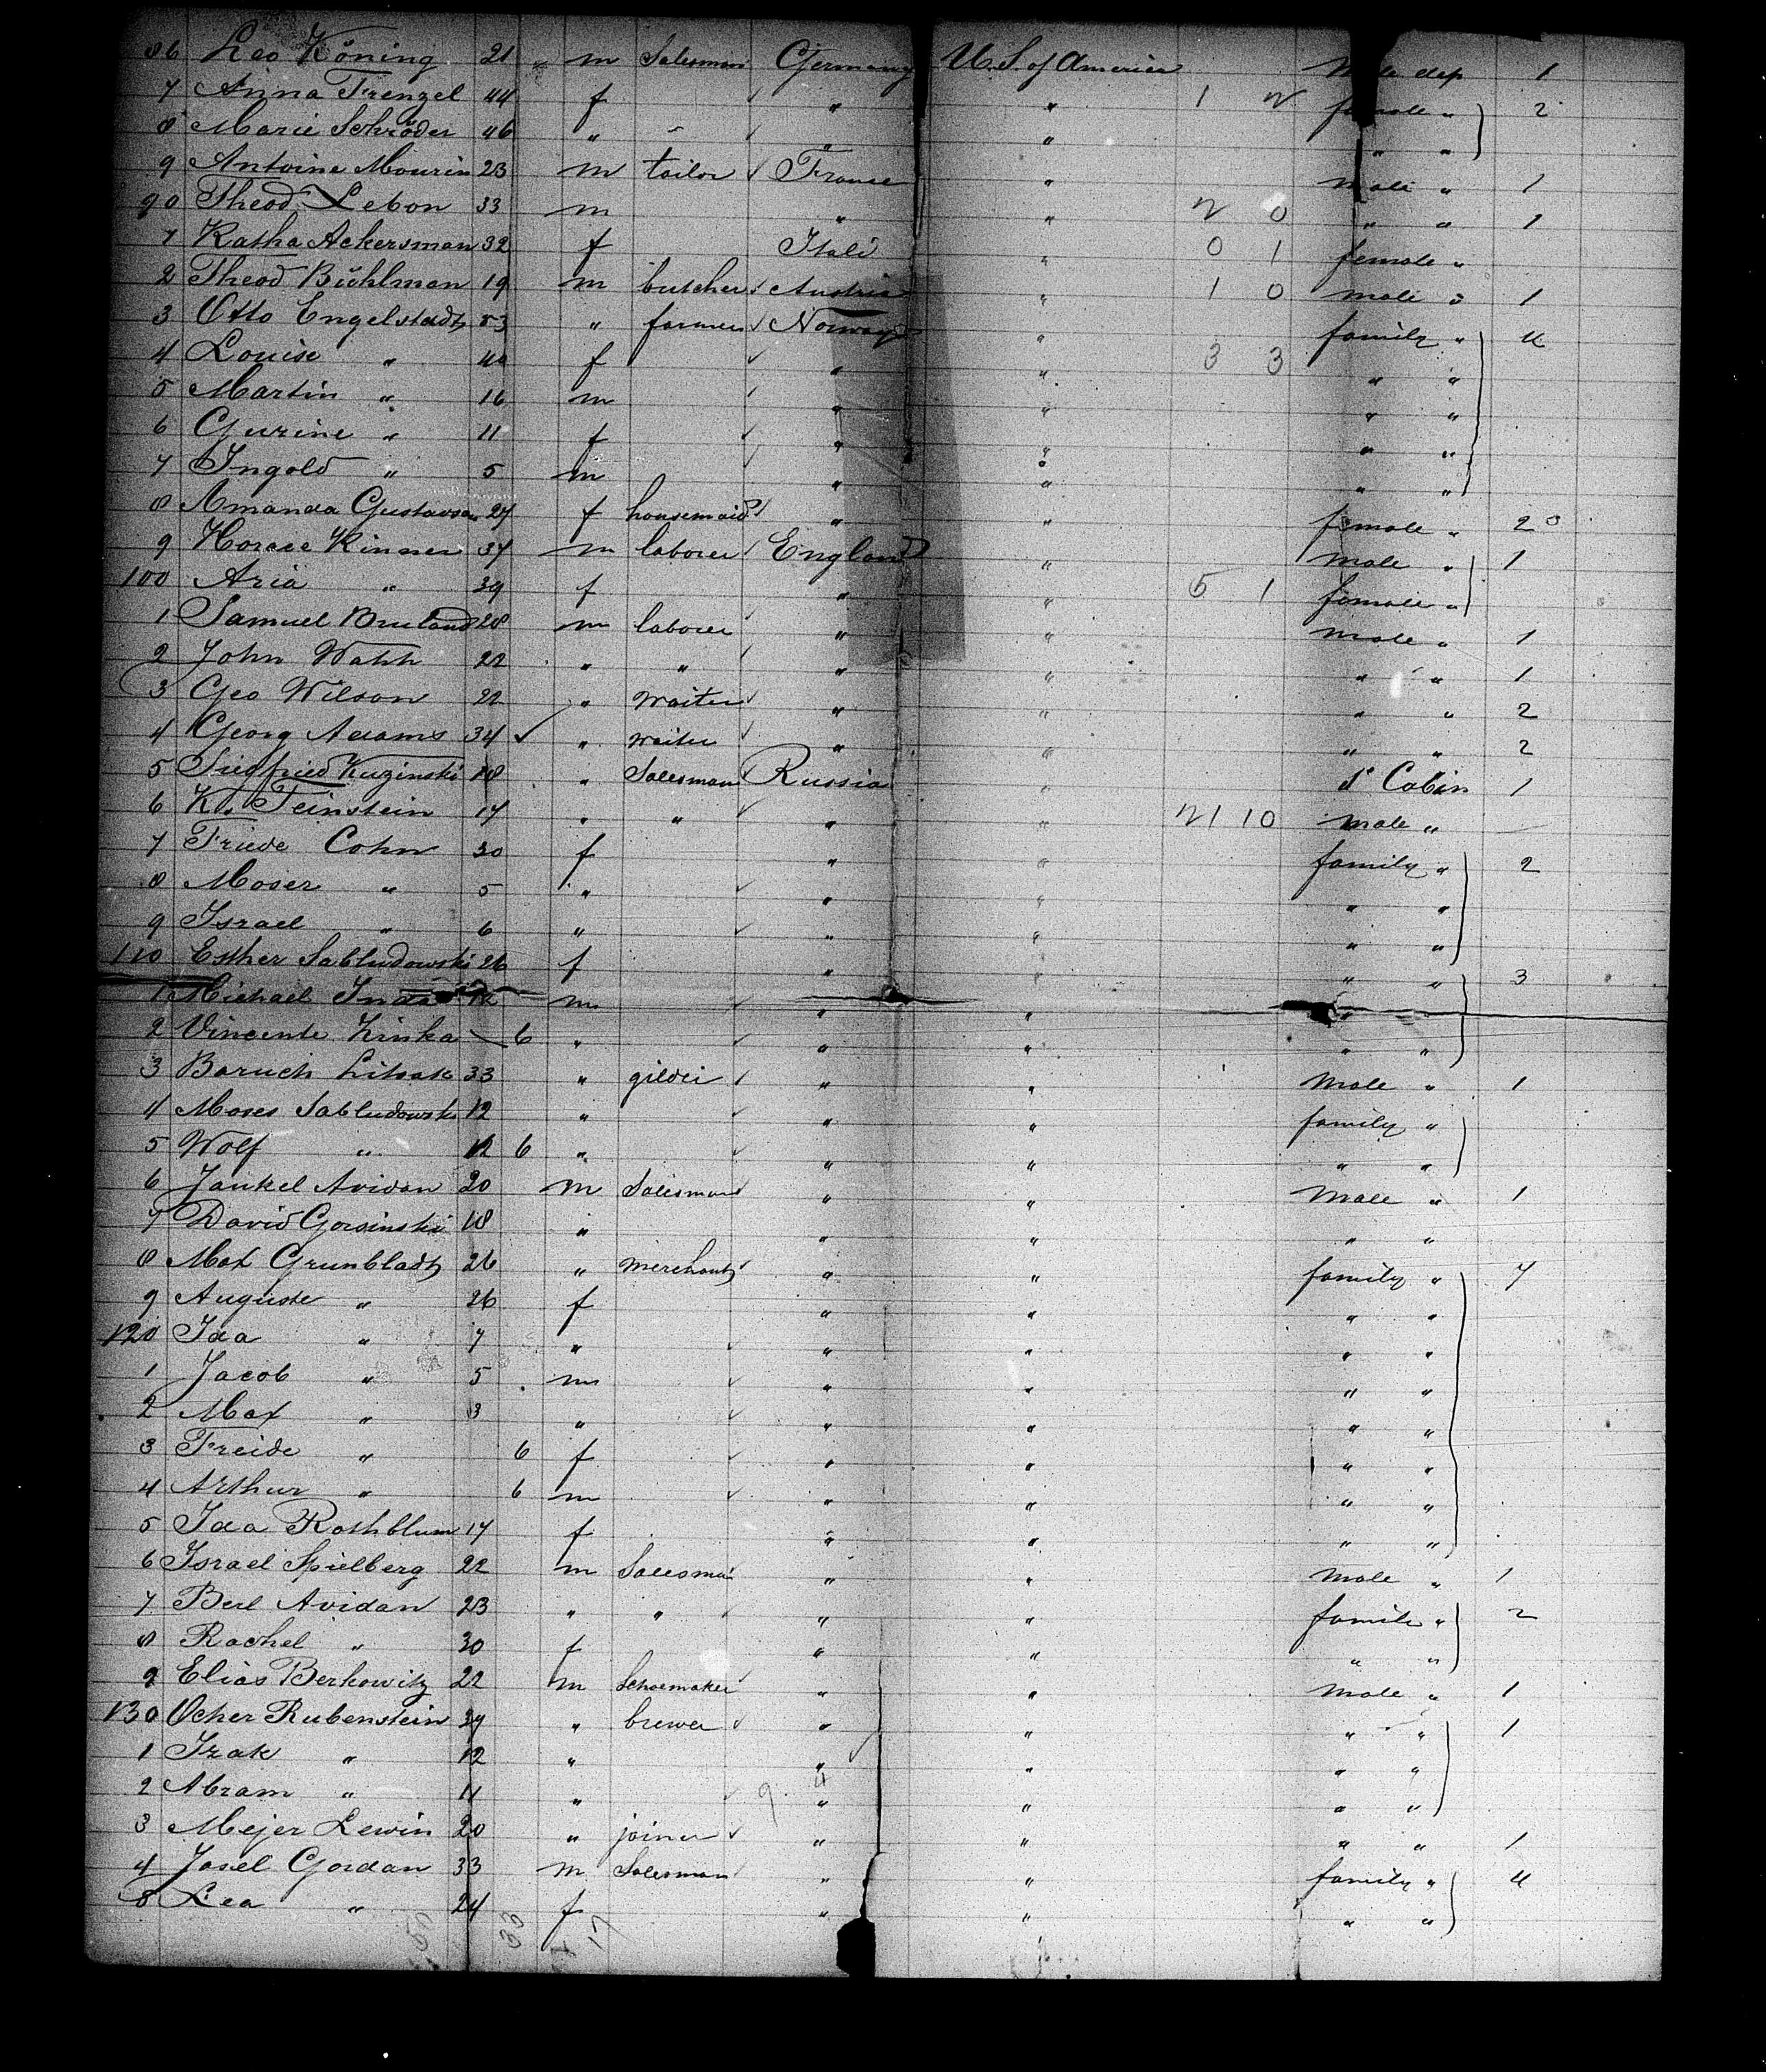 86 Leo Köning 21 " m Salesman Germany U.S. of America Male dep 1
7 Anna Frenzel 44 f " " 1 2 female " 2
8 Marie Schröder 46 " " " " "
9 Antoine Mourin 23 m tailor France " Male " 1
90 Theod. Lebon 33 m " " 2 0 " " 1
1 Katha Ackersman 32 f Itali " 0 1 female "
2 Theod Bühlman 19 m butcher Austria " 1 0 male " 1
3 Otto Engelstadt 53 " farmer Norway " family " 4
4 Louise " 40 f " " 3 3 " "
5 Martin " 16 m " " " "
6 Gurine " 11 f " " " "
7 Ingold " 5 m " " " "
8 Amanda Gustavson 27 f housemaid " " female " 2
9 Horace Kinner 37 m laborer England " male " 1
100 Aria " 39 f " " 5 1 female "
1 Samuel Bruland 28 m laborer " " male " 1
2 John Wahh 22 " " " " " " 1
3 Geo Wilson 22 " Waiter " " " " 2
4 Georg Adams 34 ✓ " Waiter " " " " 2
5 Siegfried Kuzinski 18 " Salesman Russia " Cabin 1
6 K. Feinstein 17 " " " " 21 10 Male "
7 Friede Cohn 30 f " " family " 2
8 Moser " 5 " " " " "
9 Israel " 6 " " " " "
110 Esther Sabludowski 26 f " " " " 3
1 Michael 12 m " " "
2 Vincente Zinka 6 " " " " "
3 Baruch Litsak 33 " gilder " " Male " 1
4 Moses Sabludowski 12 " " " family "
5 Wolf " 12 6 " " " " "
6 Jankel Avidan 20 m Salesman " " Male " 1
7 David Gorsinski 18 " " " " "
8 Max Grunbladt 26 " merchant " " family " 7
9 Auguste " 26 f " " " "
120 Ida " 7 " " " " "
1 Jacob " 5 m " " " "
2 Max " 3 " " " " "
3 Freide " 6 f " " " "
4 Arthur " 6 m " " " "
5 Ida Rothblum 17 f " " " "
6 Israel Spielberg 22 m Salesman " " Male " 1
7 Berl Avidan 23 " " " " famile " 2
8 Rachel " 30 f " " " "
9 Elias Berkowitz 22 m Schoemaker " " Male " 1
130 Ocher Rubenstein 39 " brewer " " " " 1
1 Izak " 12 " " " " "
2 Abram " 11 " 9 4 " " " "
3 Mejer Lewin 20 " joiner " " " " 1
4 Josel Gordan 33 m Salesman " " family " 4
5 Lea " 24 f " " " "
33 17